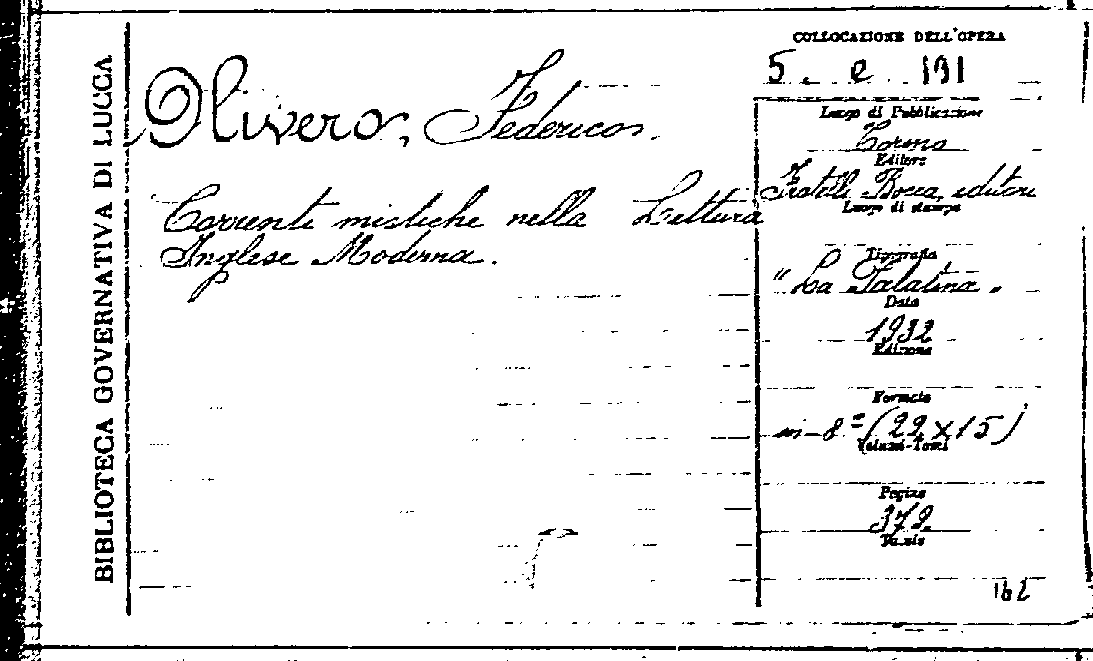 BIBLIOTECA GOVERNATIVA DI LUCCA
Olivero, Federico.
Correnti mistiche nella Lettura
Inglese Moderna.
COLLOCAZIONE DELL'OPERA
5. e 191
Luogo di Pubblicazione
Torino
Editore
Fratelli Bocca, editori
Luogo di stampa
Tipografia
"La Palatina"
Data
1932
Edizione
Formato
in-8º (22×15)
Volumi-Tomi
Pagine
379
162